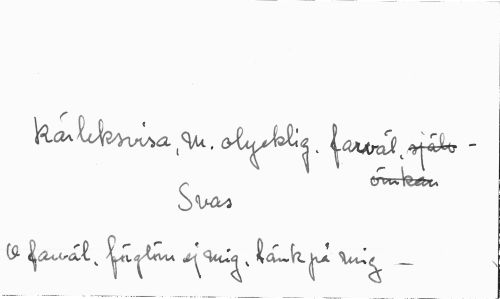 Kärleksvisa, m. olycklig. farväl, själv -
ömkan
Svas
O farväl. förglöm ej mig. tänk på mig —